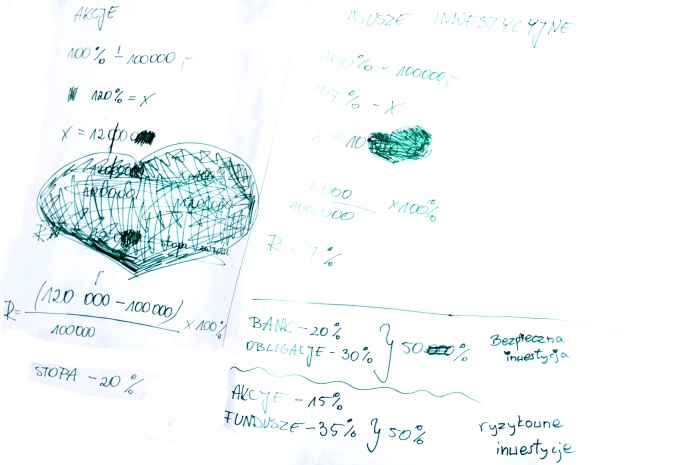 AKCJE
100% - 100000,-
120% = X
X = 12000
R = (120 000 - 100000) / 100000 x 100%
STOPA - 20%
FUNDUSZE INWESTYCYJNE
100% - 100000,-
107% - X
X = 10
000 / 100000 x 100%
R = 7%
BANK - 20%
OBLIGACJE - 30% } 50%
Bezpieczna
inwestycja
AKCJE - 15%
FUNDUSZE - 35% } 50%
ryzykowne
inwestycje